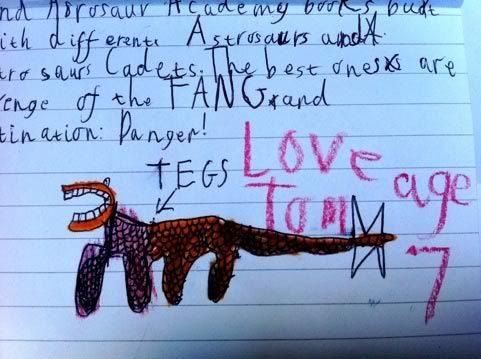 nd Astrosaur Academy books but
ith different. Astrosaurs and
trosaurs Cadets. The best ones are
enge of the FANG and
tination: Danger!
TEGS
Love
Tom
age
7